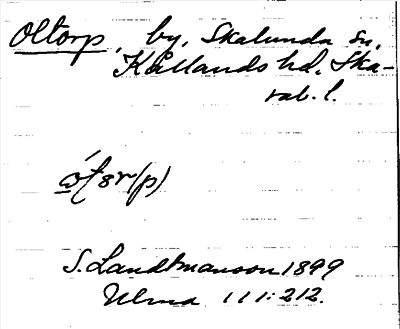 Oltorp, by, Skalunda sn,
Kållands hd, Ska-
rab. l.
S. Landtmanson 1899
Ulma 111:212.